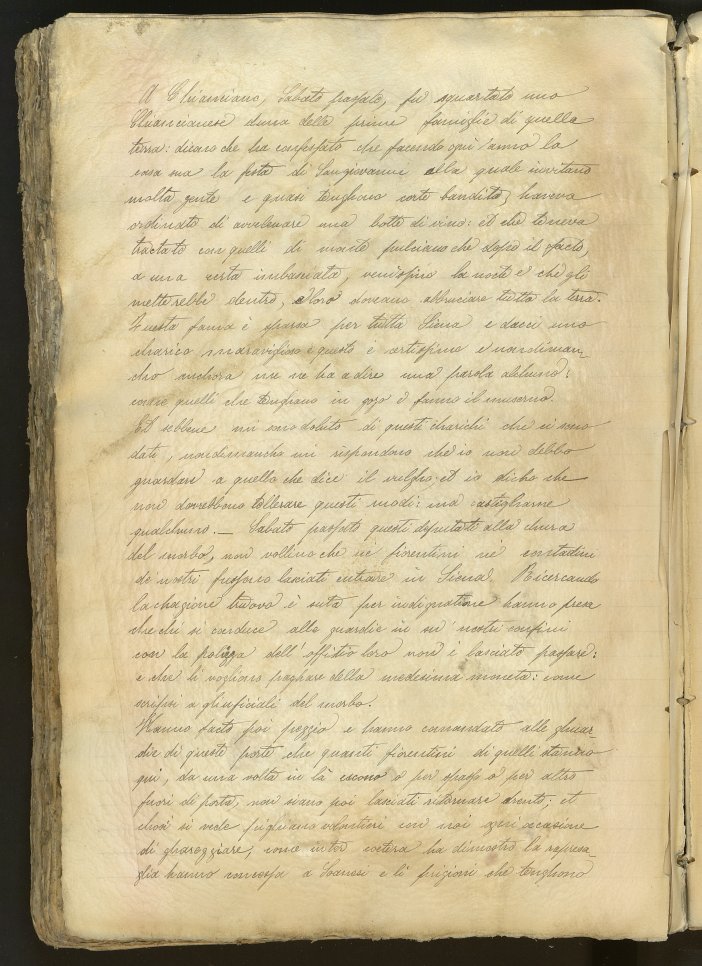 A Chianciano, Sabato passato, fu squartato uno
Chiancianese duna delle prime famiglie di quella
terra: dicano che ha confessato che facendo ogni anno la
casa sua la festa di Sangiovanni alla quale invitano
molta gente e quasi tenghono corte bandita, haveva
ordinato di avvelenare una botte di vino: et che teneva
tractato con quelli di monte pulciano che dopo il facto,
a una certa imbasciata, venissino la nocte e che gli
metterebbe dentro, e loro doveano abbruciare tutta la terra.
Questa fama è sparsa per tutta Siena e dacci uno
charico maraviglioso e questo è certissimo e nondiman-
cho anchora non ne ha a dire una parola alchuno:
come quelli che tenghono in gozo e fanno il musorno.
Et sebbene mi sono doluto di questi charichi che ci sono
dati, nondimancho mi rispondono che io non debbo
guardare a quello che dice il vulgho: et io dicho che
non dovrebbono tollerare questi modi: ma castigharne
qualchuno. — Sabato passato questi deputati alla chura
del morbo, non vollino che nè fiorentini nè contadini
de' nostri fussero lasciati entrare in Siena. Ricercando
la chagione truovo è suta per indignatione hanno presa
che chi si conduce alle guardie in su' nostri confini
con la polizza dell' offitio loro non è lasciato passare:
e che li vogliono paghare della medesima moneta: come
scripsi a gli uficiali del morbo.
Hanno facto poi peggio e hanno comandato alle ghuar-
die di queste porte che quanti fiorentini di quelli stanno
qui, da una volta in là escono o per spasso o per altro
fuori di porta, non siano poi lasciati ritornare drento: et
chosì si vede pigliano volentieri con noi ogni occasione
di ghareggiare, come inter cetera ha dimostro la represa-
glia hanno concessa a Sanesi e li prigioni che tenghono